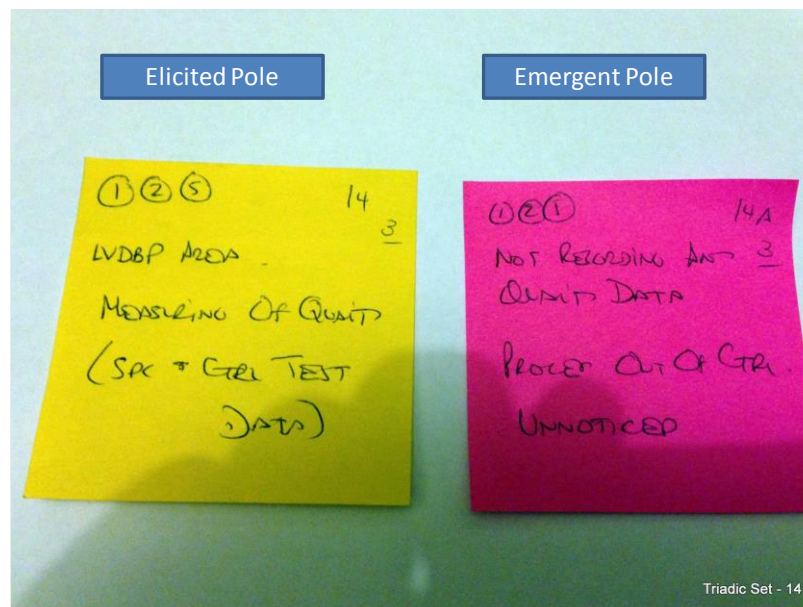 Elicited Pole
Emergent Pole
1 2 5 14
3
LVDBP AREA.
MEASURING OF QUALITY
(SPC + CTRL TEST
DATA)
14A
NOT RECORDING ANY 3
QUALITY DATA
PROCESS OUT OF CTRL.
UNNOTICED
Triadic Set - 14